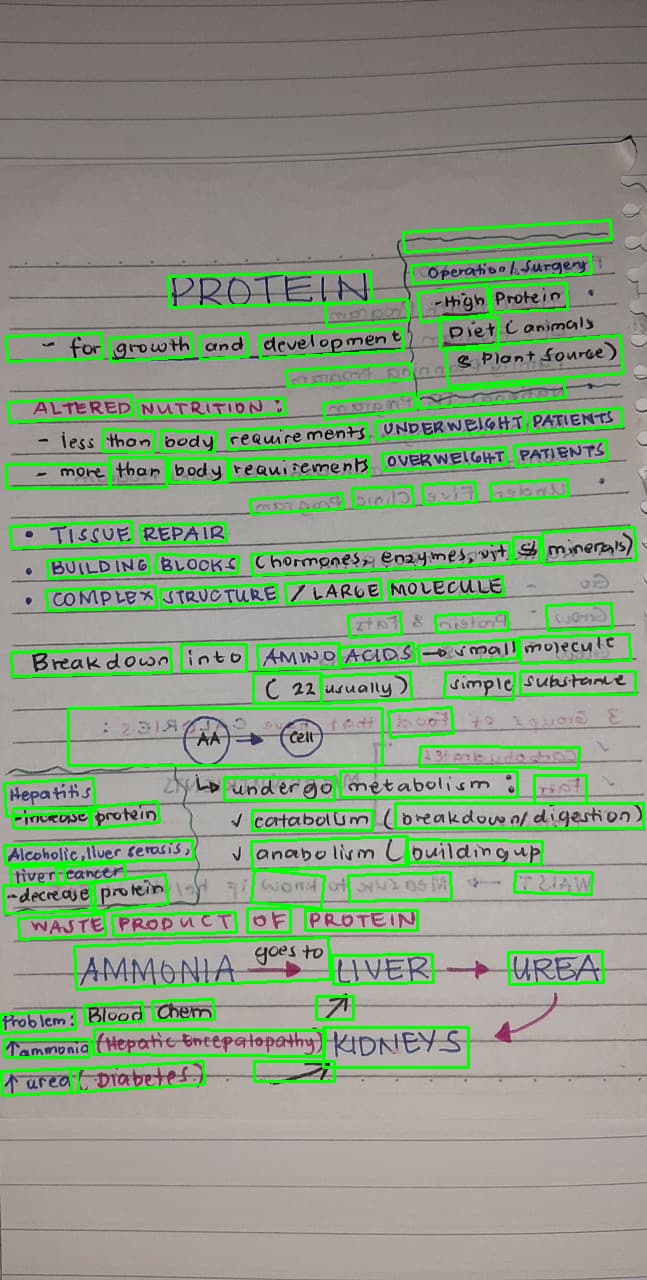 Operation/Surgery
-High Protein
Diet (animals
& Plant source)
PROTEIN
- for growth and development
ALTERED NUTRITION:
- less than body requirements UNDERWEIGHT PATIENTS
- more than body requirements OVERWEIGHT PATIENTS
• TISSUE REPAIR
• BUILDING BLOCKS (hormones, enzymes, vit & minerals)
• COMPLEX STRUCTURE / LARGE MOLECULE
Breakdown into AMINO ACIDS → small molecule
(22 usually) simple substance
AA → Cell
↳ undergo metabolism:
✓ catabolism (breakdown/digestion)
✓ anabolism (building up
Hepatitis
-increase protein
Alcoholic, liver serosis,
liver cancer
-decrease protein
WASTE PRODUCT OF PROTEIN
AMMONIA goes to → LIVER → UREA
KIDNEYS
Problem: Blood Chem
↑ammonia (Hepatic Encepalopathy)
↑ urea (Diabetes)